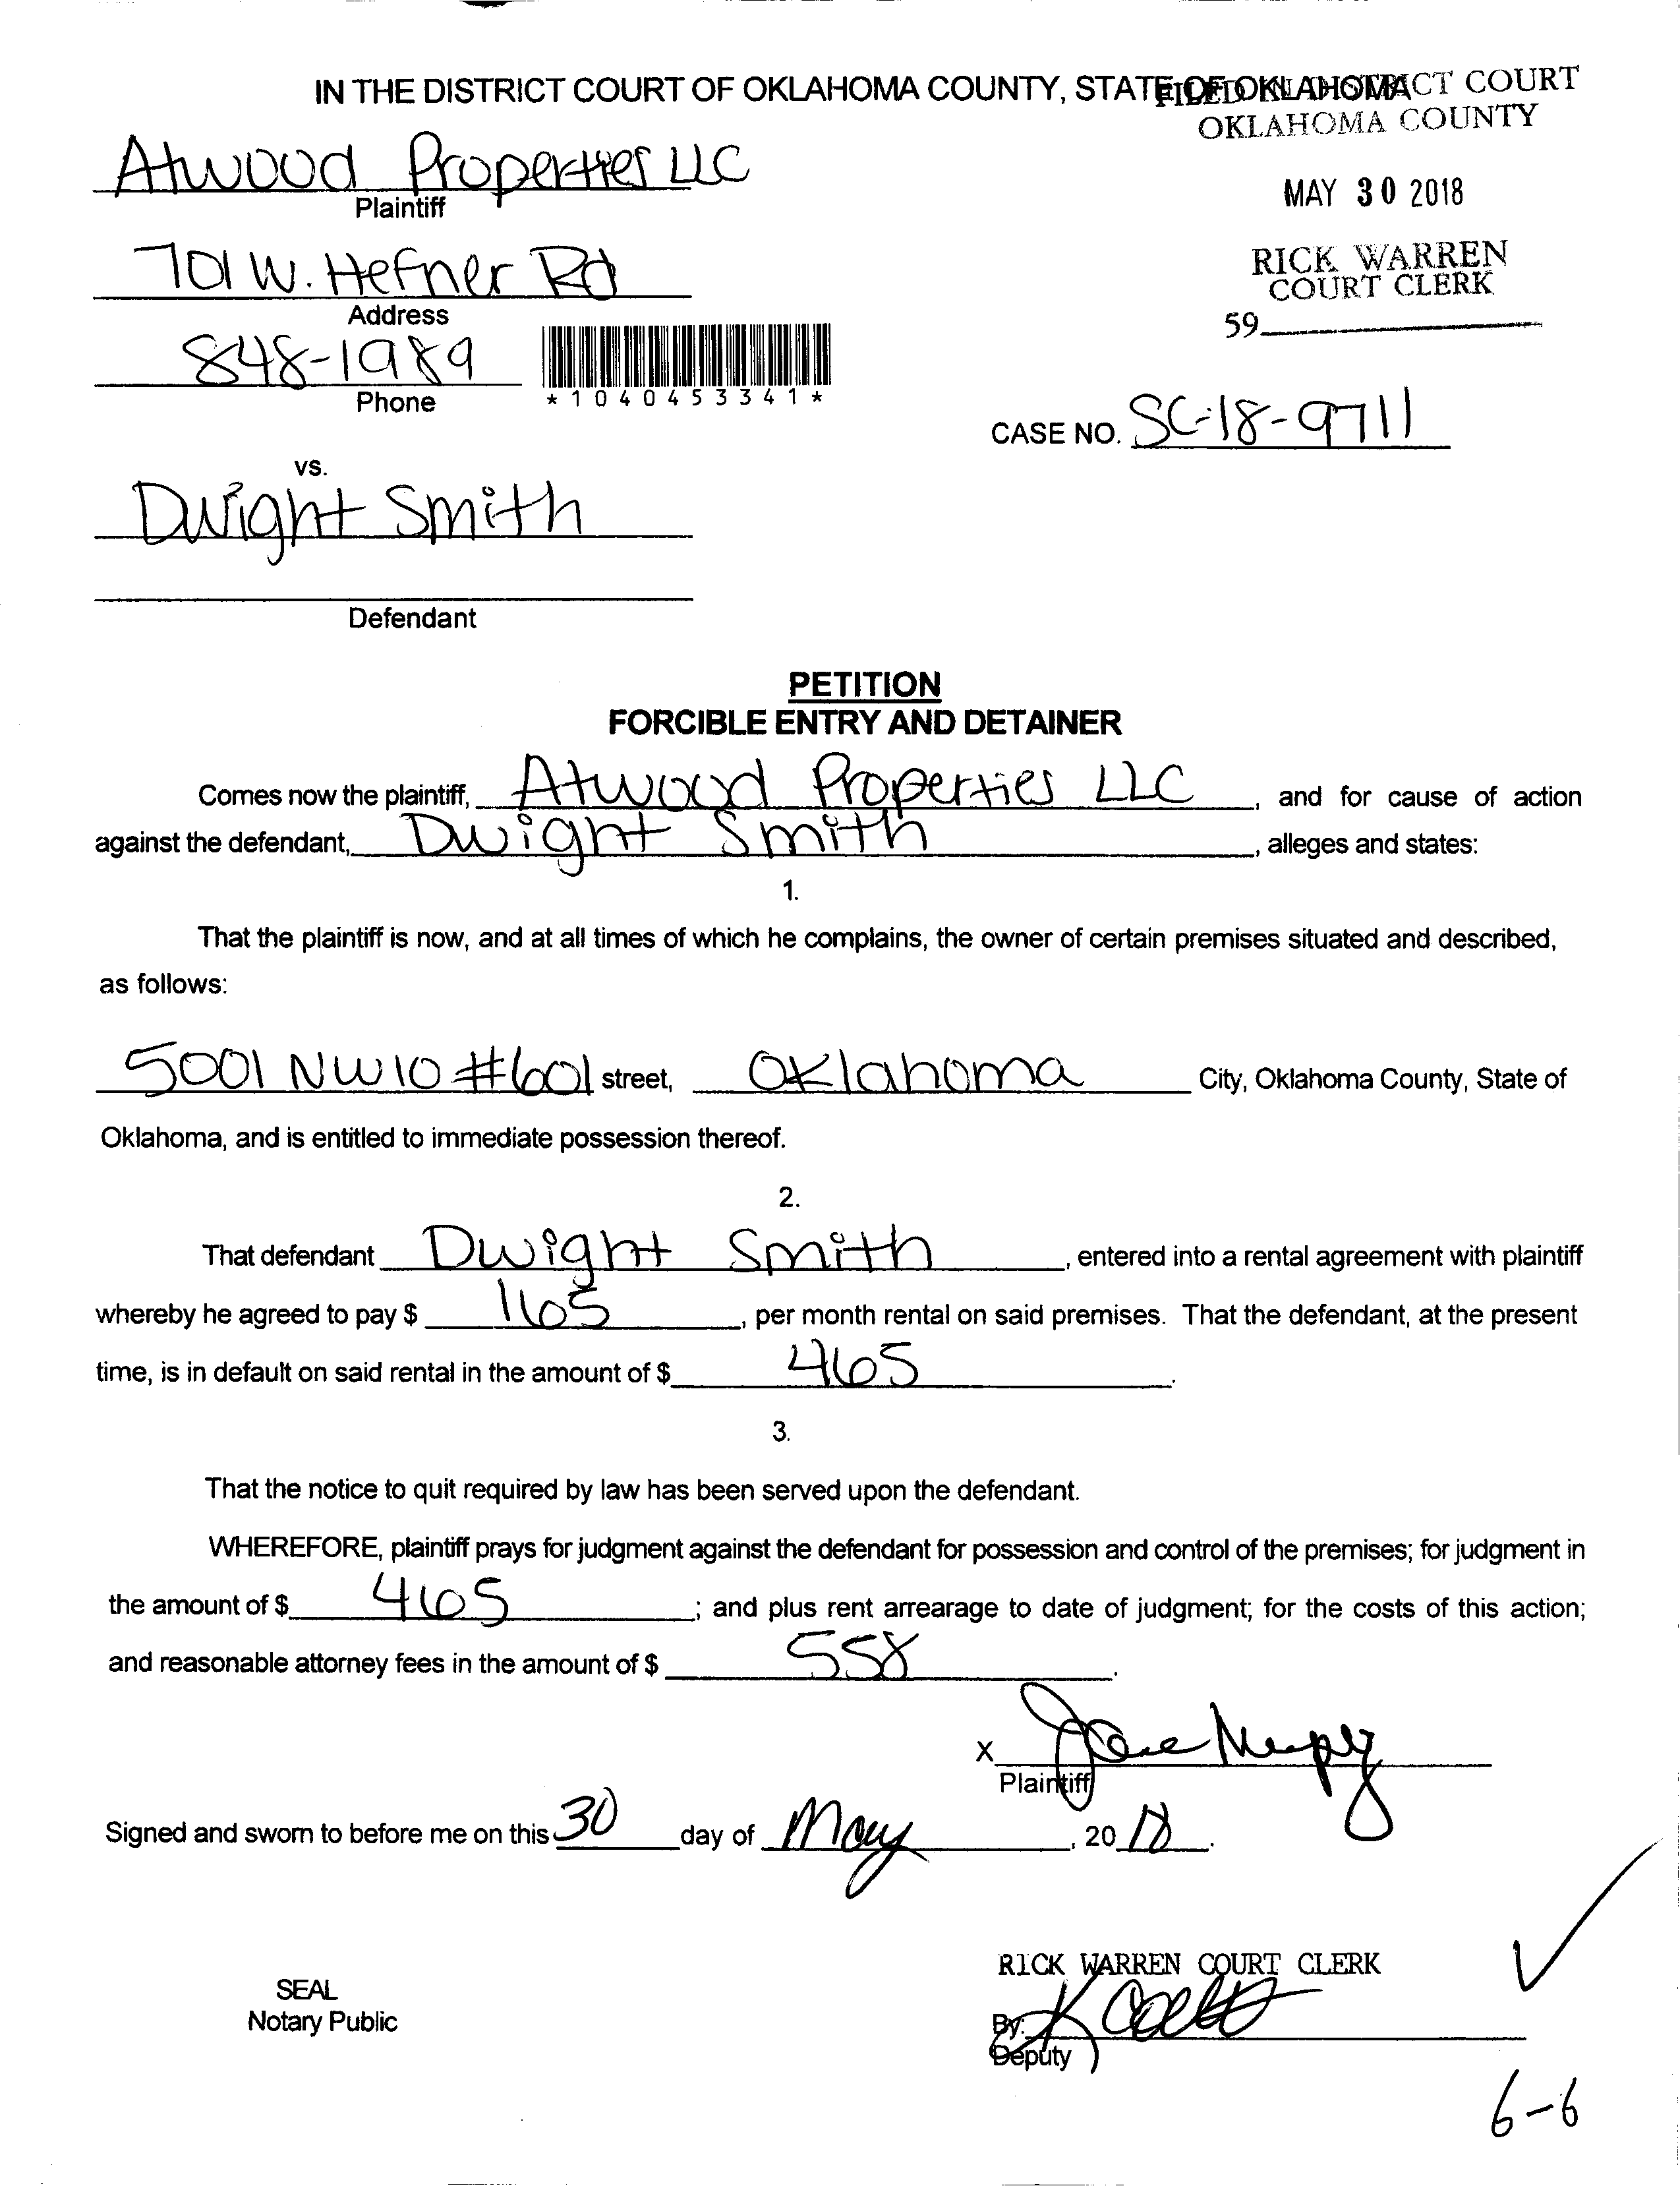 IN THE DISTRICT COURT OF OKLAHOMA COUNTY, STATE OF OKLAHOMA
FILED IN DISTRICT COURT
OKLAHOMA COUNTY
Atwood Properties LLC
Plaintiff
MAY 30 2018
701 W. Hefner Rd
Address
RICK WARREN
COURT CLERK
59
848-1989
Phone
*1040453341*
CASE NO. SC-18-9711
vs.
Dwight Smith
Defendant
PETITION
FORCIBLE ENTRY AND DETAINER
Comes now the plaintiff, Atwood Properties LLC, and for cause of action
against the defendant, Dwight Smith, alleges and states:
1.
That the plaintiff is now, and at all times of which he complains, the owner of certain premises situated and described,
as follows:
5001 NW 10 #601 street, Oklahoma City, Oklahoma County, State of
Oklahoma, and is entitled to immediate possession thereof.
2.
That defendant Dwight Smith, entered into a rental agreement with plaintiff
whereby he agreed to pay $ 165, per month rental on said premises. That the defendant, at the present
time, is in default on said rental in the amount of $ 465.
3.
That the notice to quit required by law has been served upon the defendant.
WHEREFORE, plaintiff prays for judgment against the defendant for possession and control of the premises; for judgment in
the amount of $ 465; and plus rent arrearage to date of judgment; for the costs of this action;
and reasonable attorney fees in the amount of $ 558.
X
Plaintiff
Signed and sworn to before me on this 30 day of May, 20 18.
RICK WARREN COURT CLERK
SEAL
Notary Public
By:
Deputy
6-6